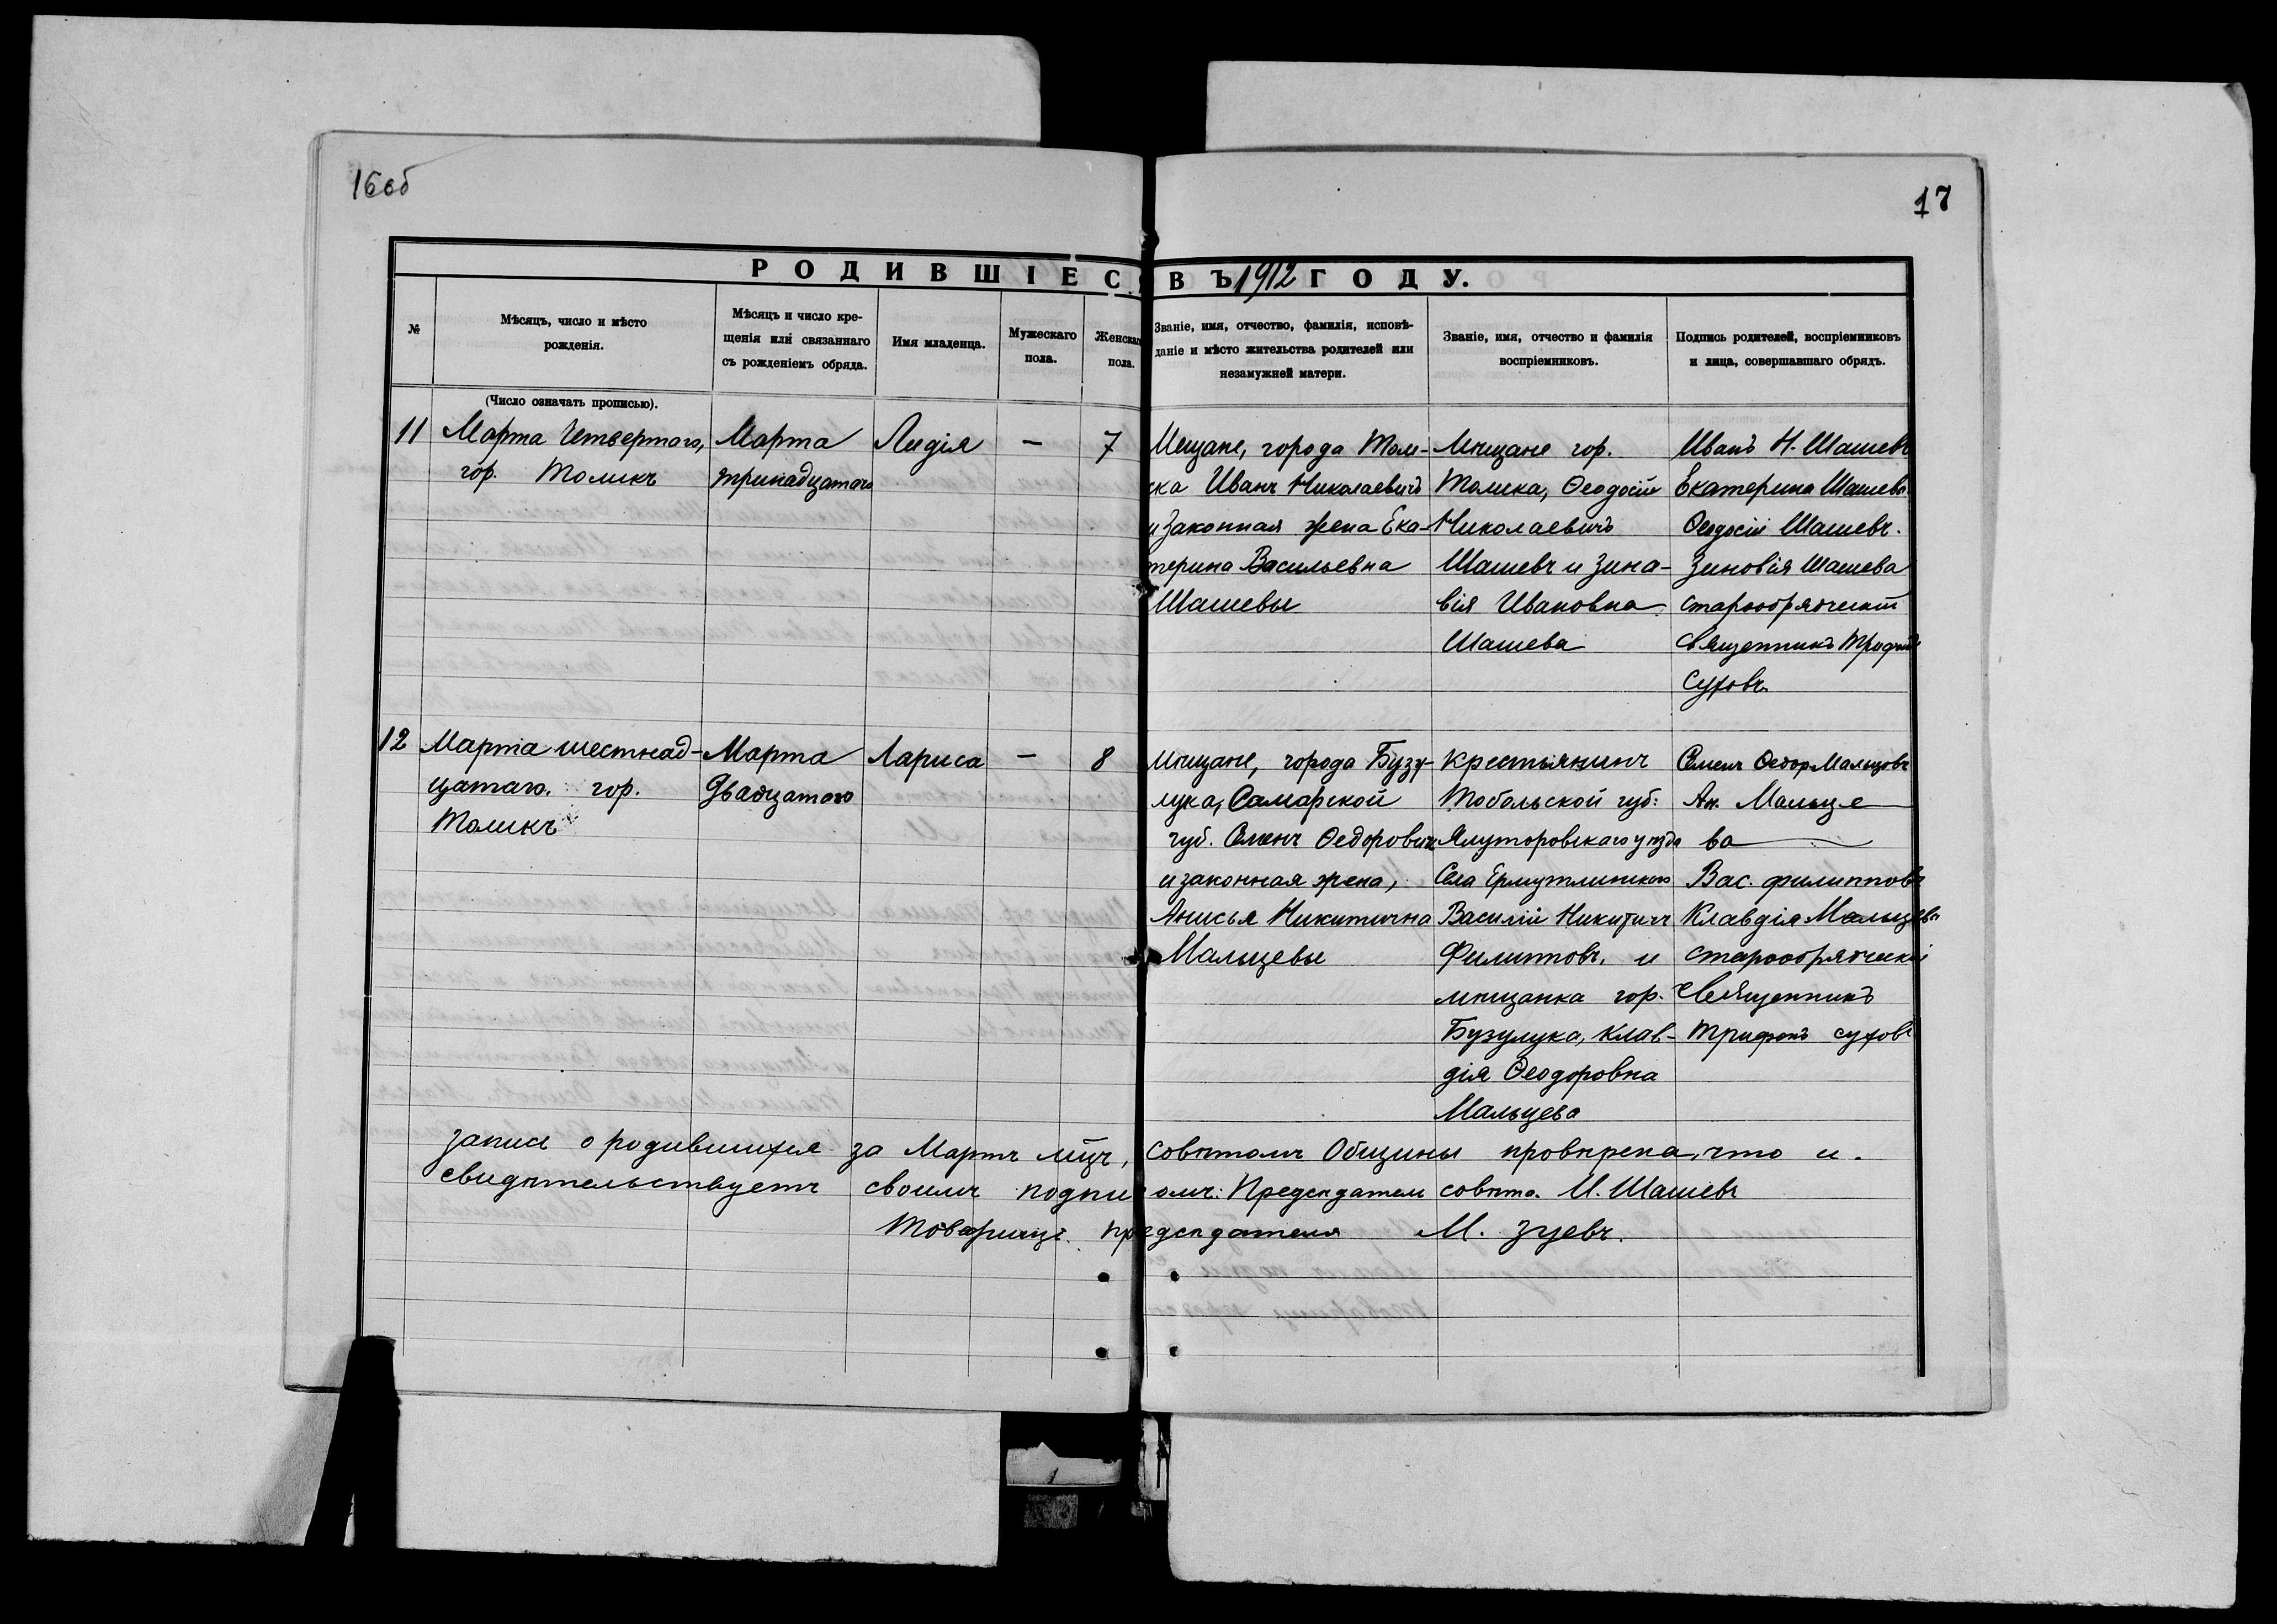 16об
17
РОДИВШІЕС ВЪ 1912 ГОДУ.
№
Мѣсяцъ, число и мѣсто
рожденія.
Мѣсяцъ и число кре-
щенія или связаннаго
съ рожденіемъ обряда.
Имя младенца.
Мужескаго
пола.
Женскаг
пола.
Званіе, имя, отчество, фамилія, исповѣ-
даніе и мѣсто жительства родителей или
незамужней матери.
Званіе, имя, отчество и фамилія
воспріемниковъ.
Подпись родителей, воспріемниковъ
и лица, совершавшаго обрядъ.
(Число означать прописью).
11
Марта Четвертаго,
гор. Томскъ
Марта
тринадцатаго
Лидія
—
7
Мещане, города Том-
ска Иванъ Николаевичъ
и законная жена Ека-
терина Васильевна
Шашевы
Мѣщане гор.
Томска, Ѳеодосій
Николаевичъ
Шашевъ и Зина-
вія Ивановна
Шашева
Иванъ Н. Шашевъ
Екатерина Шашева
Ѳеодосій Шашевъ.
Зиновія Шашева
старообрядческій
священникъ Трифонъ
Суховъ.
12
Марта шестнад-
цатаго. гор.
Томскъ
Марта
Двадцатого
Лариса
—
8
мѣщане, города Бузу-
лука, Самарской
губ. Семенъ Ѳедоровичъ
и законная жена,
Анисья Никитична
Мальцевы
крестьянинъ
Тобольской губ:
Ялуторовскаго уѣзда
Села Ермутлинского
Василій Никитичъ
Филиповъ. и
мѣщанка гор.
Бузулука, Клав-
дія Ѳеодоровна
Мальцева
Семенъ Ѳедор Мальцовъ
Ан. Мальце
ва
Вас. филиповъ
Клавдія Мальцева
старообрядческій
Священникъ
Трифонъ суховъ
запись о родившихся за Мартъ мцъ, совѣтомъ Общины провѣрена, что и.
свидѣтельствуетъ своимъ подписомъ: Предсѣдатель совѣта. И. Шашевъ
Товарищъ. предсѣдателя М. Зуевъ.